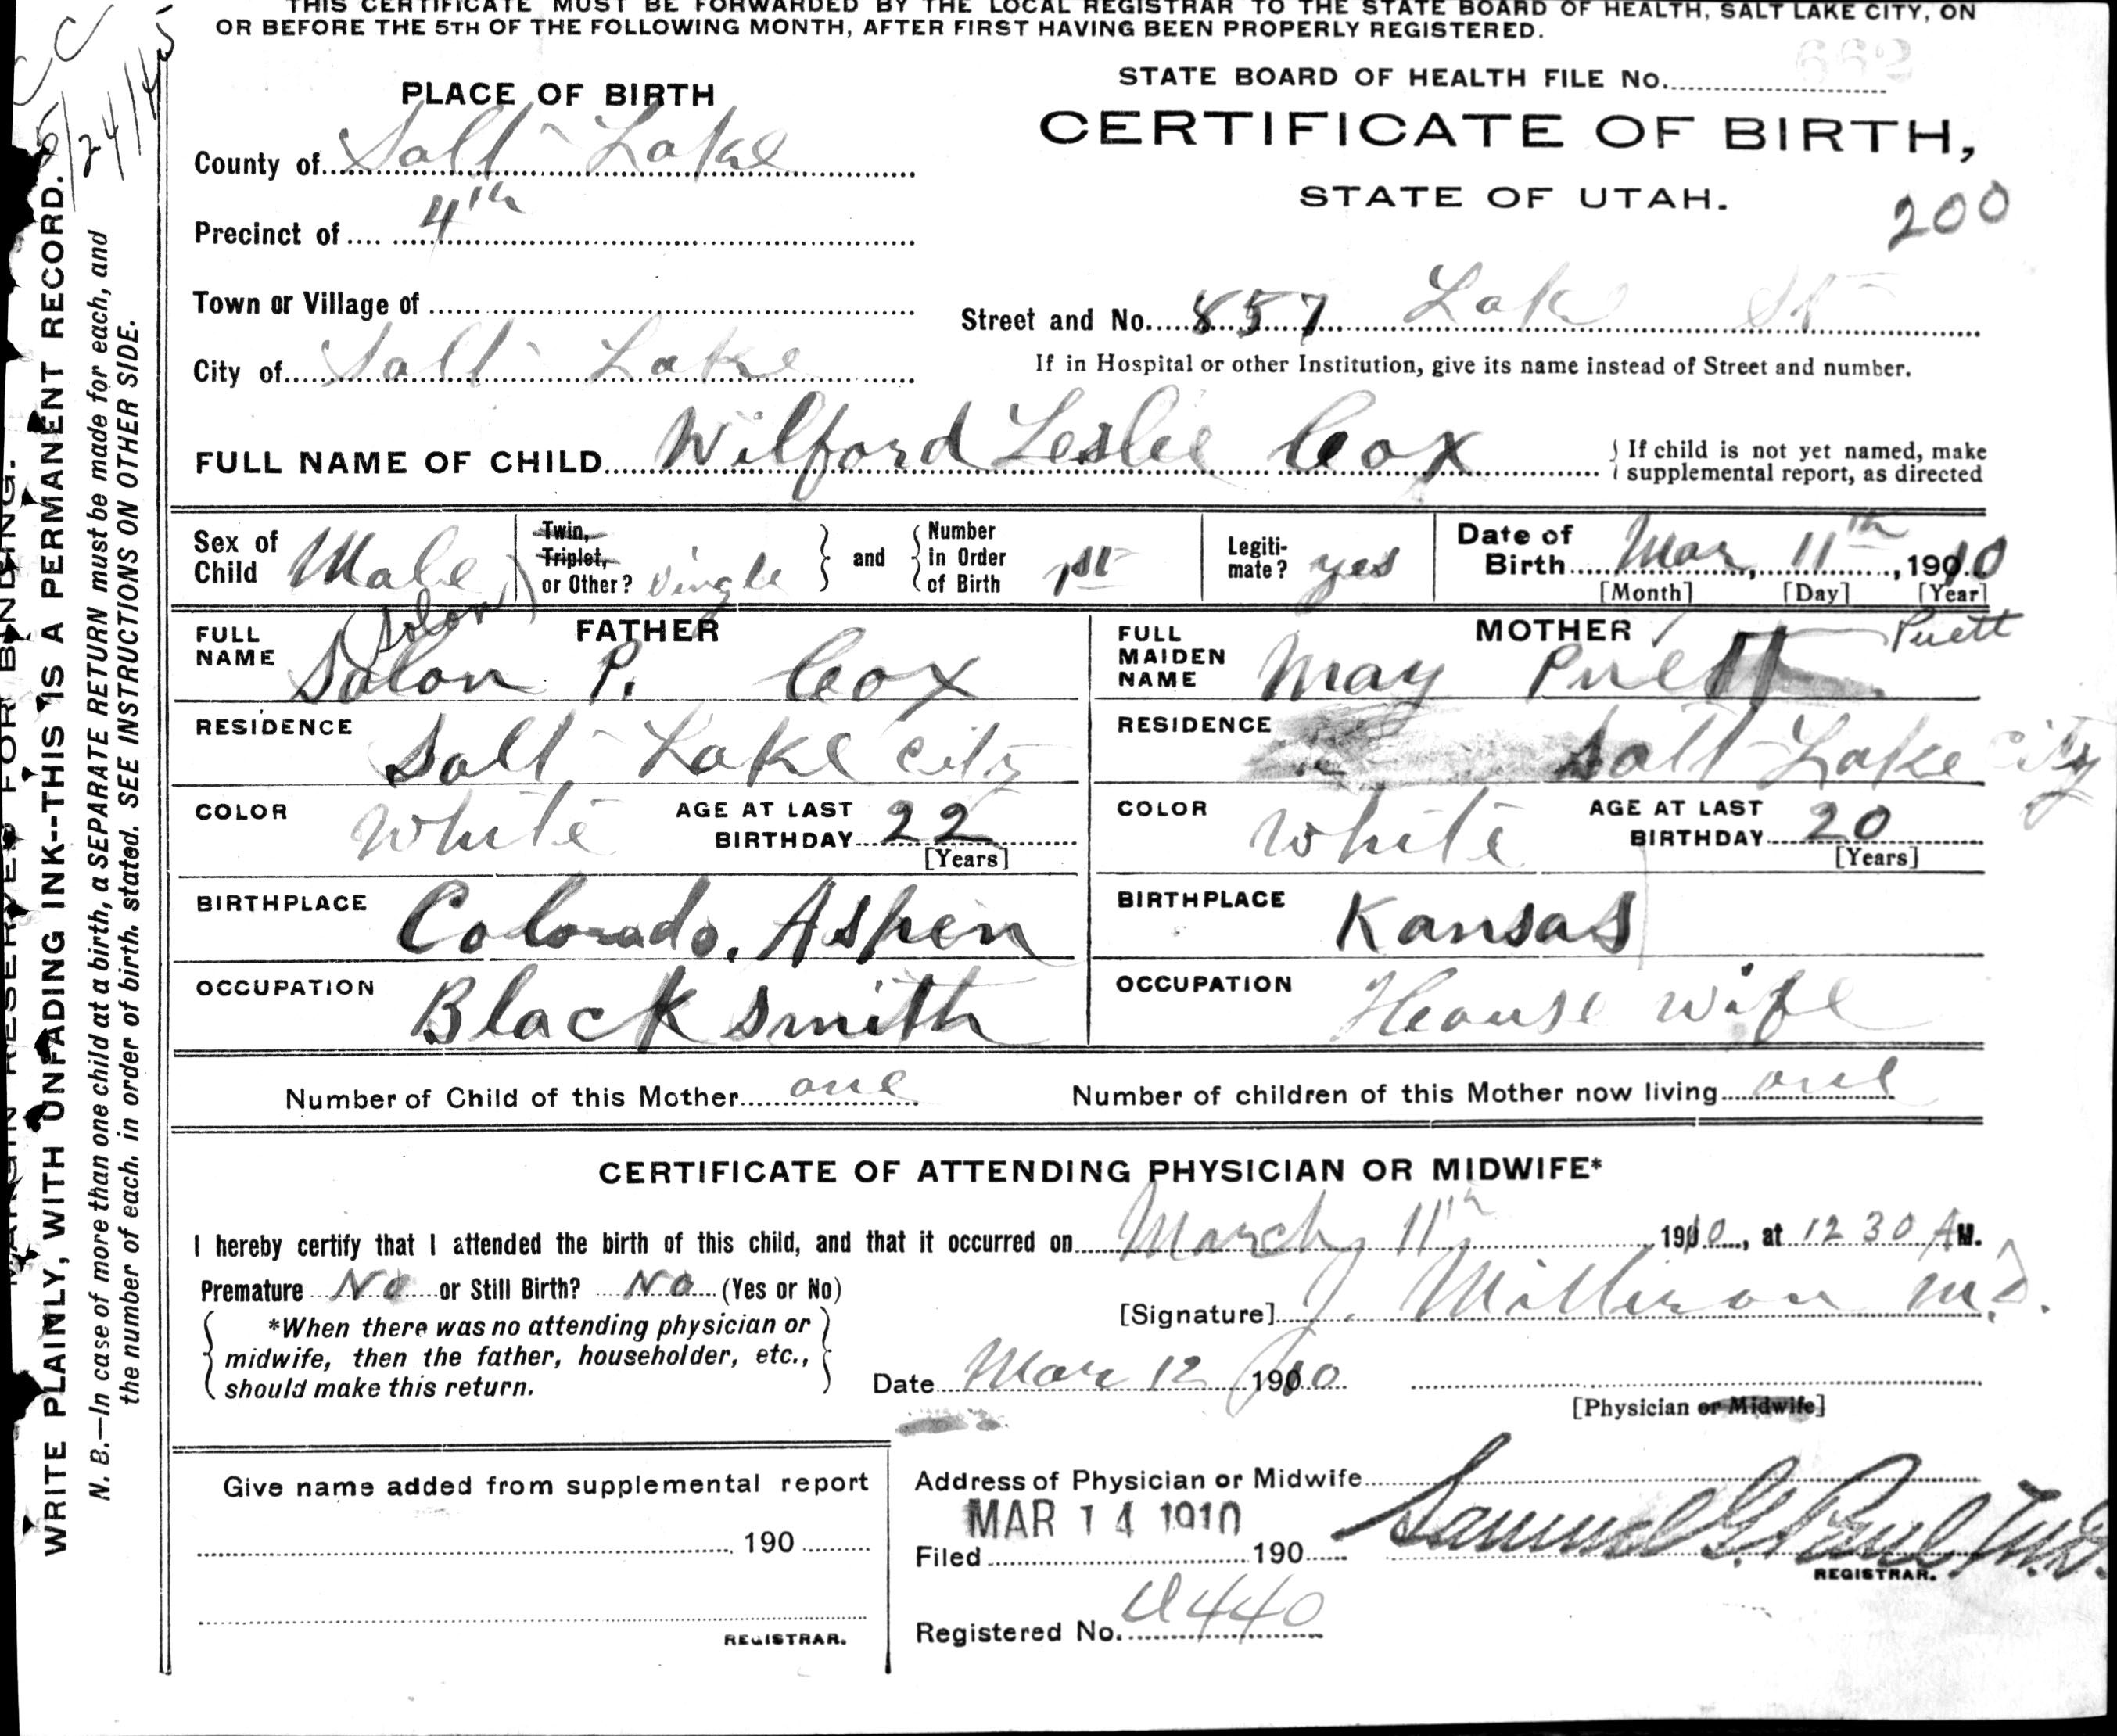 THIS CERTIFICATE MUST BE FORWARDED BY THE LOCAL REGISTRAR TO THE STATE BOARD OF HEALTH, SALT LAKE CITY, ON
OR BEFORE THE 5TH OF THE FOLLOWING MONTH, AFTER FIRST HAVING BEEN PROPERLY REGISTERED.
CC
5/24/45
MARGIN RESERVED FOR BINDING.
WRITE PLAINLY, WITH UNFADING INK--THIS IS A PERMANENT RECORD.
N. B.—In case of more than one child at a birth, a SEPARATE RETURN must be made for each, and
the number of each. in order of birth. stated. SEE INSTRUCTIONS ON OTHER SIDE.
PLACE OF BIRTH
County of Salt Lake
Precinct of 4th
Town or Village of
City of Salt Lake
STATE BOARD OF HEALTH FILE No. 662
CERTIFICATE OF BIRTH,
STATE OF UTAH.
200
Street and No. 857 Lake St
If in Hospital or other Institution, give its name instead of Street and number.
FULL NAME OF CHILD Wilford Leslie Cox
If child is not yet named, make
supplemental report, as directed
Sex of Child Male
Twin, Triplet, or Other? Single
and
Number in Order of Birth 1st
Legitimate? yes
Date of Birth Mar 11th, 1910
[Month] [Day] [Year]
FATHER
FULL NAME Solon P. Cox
Solon
RESIDENCE Salt Lake City
COLOR White AGE AT LAST BIRTHDAY 22
[Years]
BIRTHPLACE Colorado. Aspen
OCCUPATION Black smith
MOTHER
FULL MAIDEN NAME May Puett
Puett
RESIDENCE Salt Lake City
COLOR White AGE AT LAST BIRTHDAY 20
[Years]
BIRTHPLACE Kansas
OCCUPATION House wife
Number of Child of this Mother one Number of children of this Mother now living one
CERTIFICATE OF ATTENDING PHYSICIAN OR MIDWIFE*
I hereby certify that I attended the birth of this child, and that it occurred on March 11th 1910, at 12 30 AM.
Premature No or Still Birth? No (Yes or No)
*When there was no attending physician or
midwife, then the father, householder, etc.,
should make this return.
[Signature] J. Milliron M.D.
Date Mar 12 1910
[Physician or Midwife]
Give name added from supplemental report
190
REGISTRAR.
Address of Physician or Midwife
MAR 14 1910
Filed 190
Samuel G. Paul M.D.
REGISTRAR.
Registered No. 440